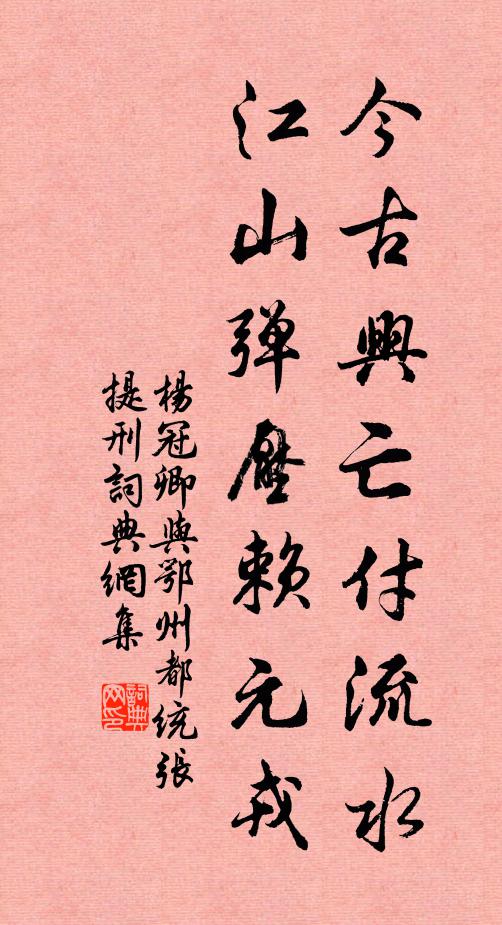 今古興亡付流水
江山弹壓賴元戎
楊冠卿與鄂州都統張
提刑詞典網集
詞典网印